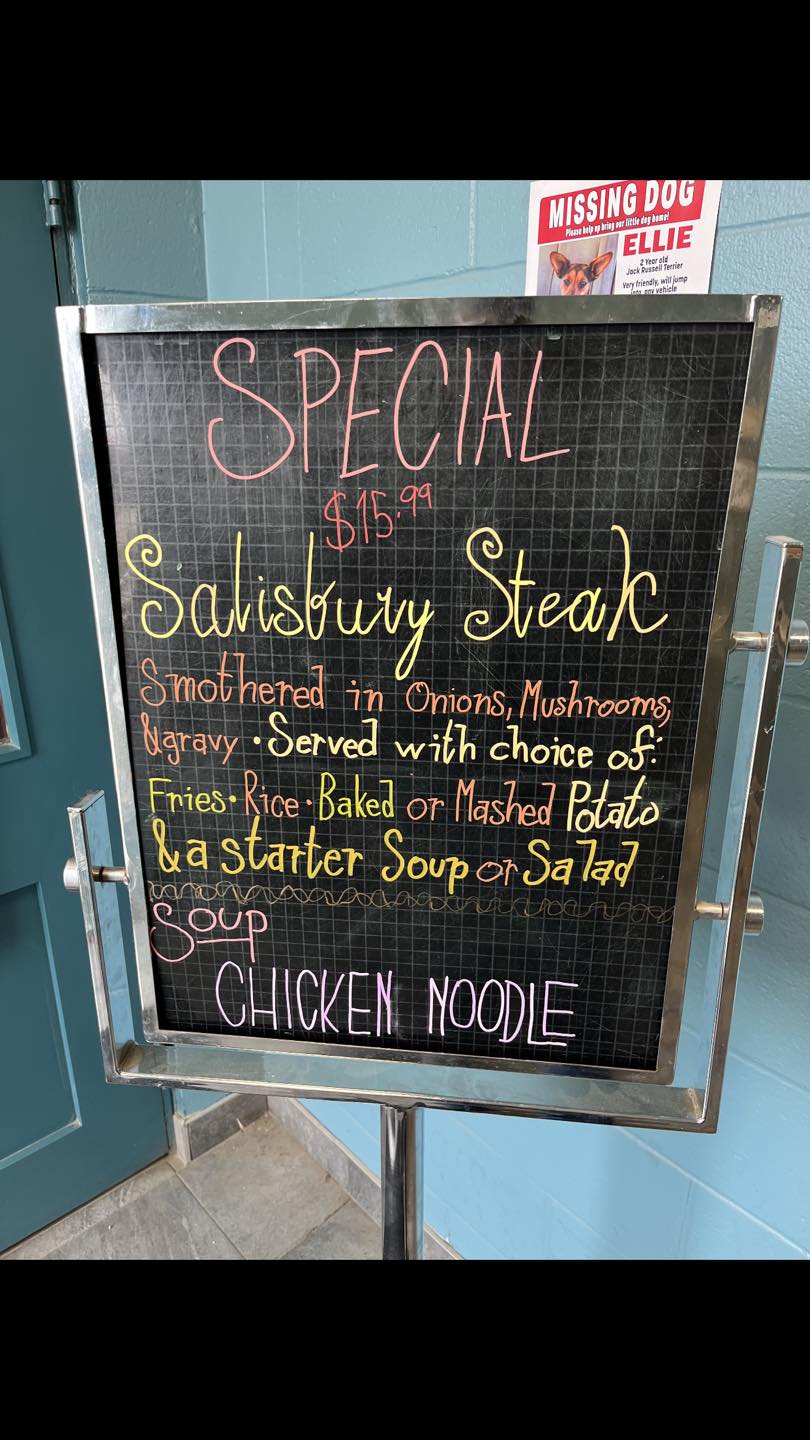 MISSING DOG
Please help up bring our little dog home!
ELLIE
2 Year old
Jack Russell Terrier
Very friendly, will jump
into any vehicle
SPECIAL
$15.99
Salisbury Steak
Smothered in Onions, Mushrooms,
& gravy • Served with choice of:
Fries • Rice • Baked or Mashed Potato
& a starter Soup or Salad
Soup
CHICKEN NOODLE